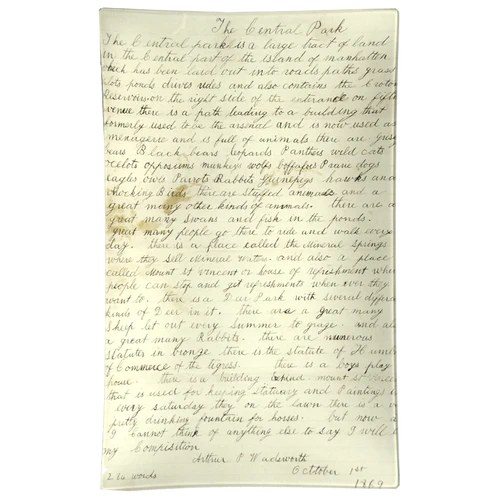 The Central Park
The Central park is a large tract of land
in the Central part of the island of manhatten
has been laid out into roads paths grass
plots ponds drives rides and also contains the Croton
Reservoir on the right side of the entrance on fifth
venue there is a path leading to a building that
formerly used to be the arsenal and is now used as
menagerie and is full of animals there are
bears Black bears leopards Panthers wild cats
ocelots opossums wolfs Prarie dogs
eagles owls Parrots Rabbits hawks and
Mocking Birds there are Stuffed animals and a
great many other kinds of animals. there are a
great many Swans and fish in the ponds.
great many people go there to ride and walk every
day. there is a place called the Mineral Springs
where they sell Mineral Water. and also a place
called Mount St vincent or house of refreshment where
people can stop and get refreshments when ever they
want to. there is a Deer Park with several
kinds of Deer in it. there are a great many
Sheep let out every Summer to graze. and
a great many Rabbits. there are numerous
statutes in bronze there is the statute of
of Commerce of the tigress. there is a Boys play
house. there is a building behind mount St
that is used for keeping statuary and Paintings
every saturday they on the lawn there is a
pretty drinking fountain for horses. but now
I cannot think of anything else to say I will
my Composition
Arthur P Wadsworth
October 1st
words
1869